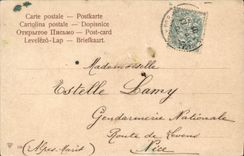 Carte postale - Postkarte
Cartolina postale - Dopisnice
Открытое Письмо - Post-card
Levelező-Lap - Briefkaart.
Mademoiselle
Estelle Lamy
Gendarmerie Nationale
Route de Levens
Nice
(Alpes-Marit)